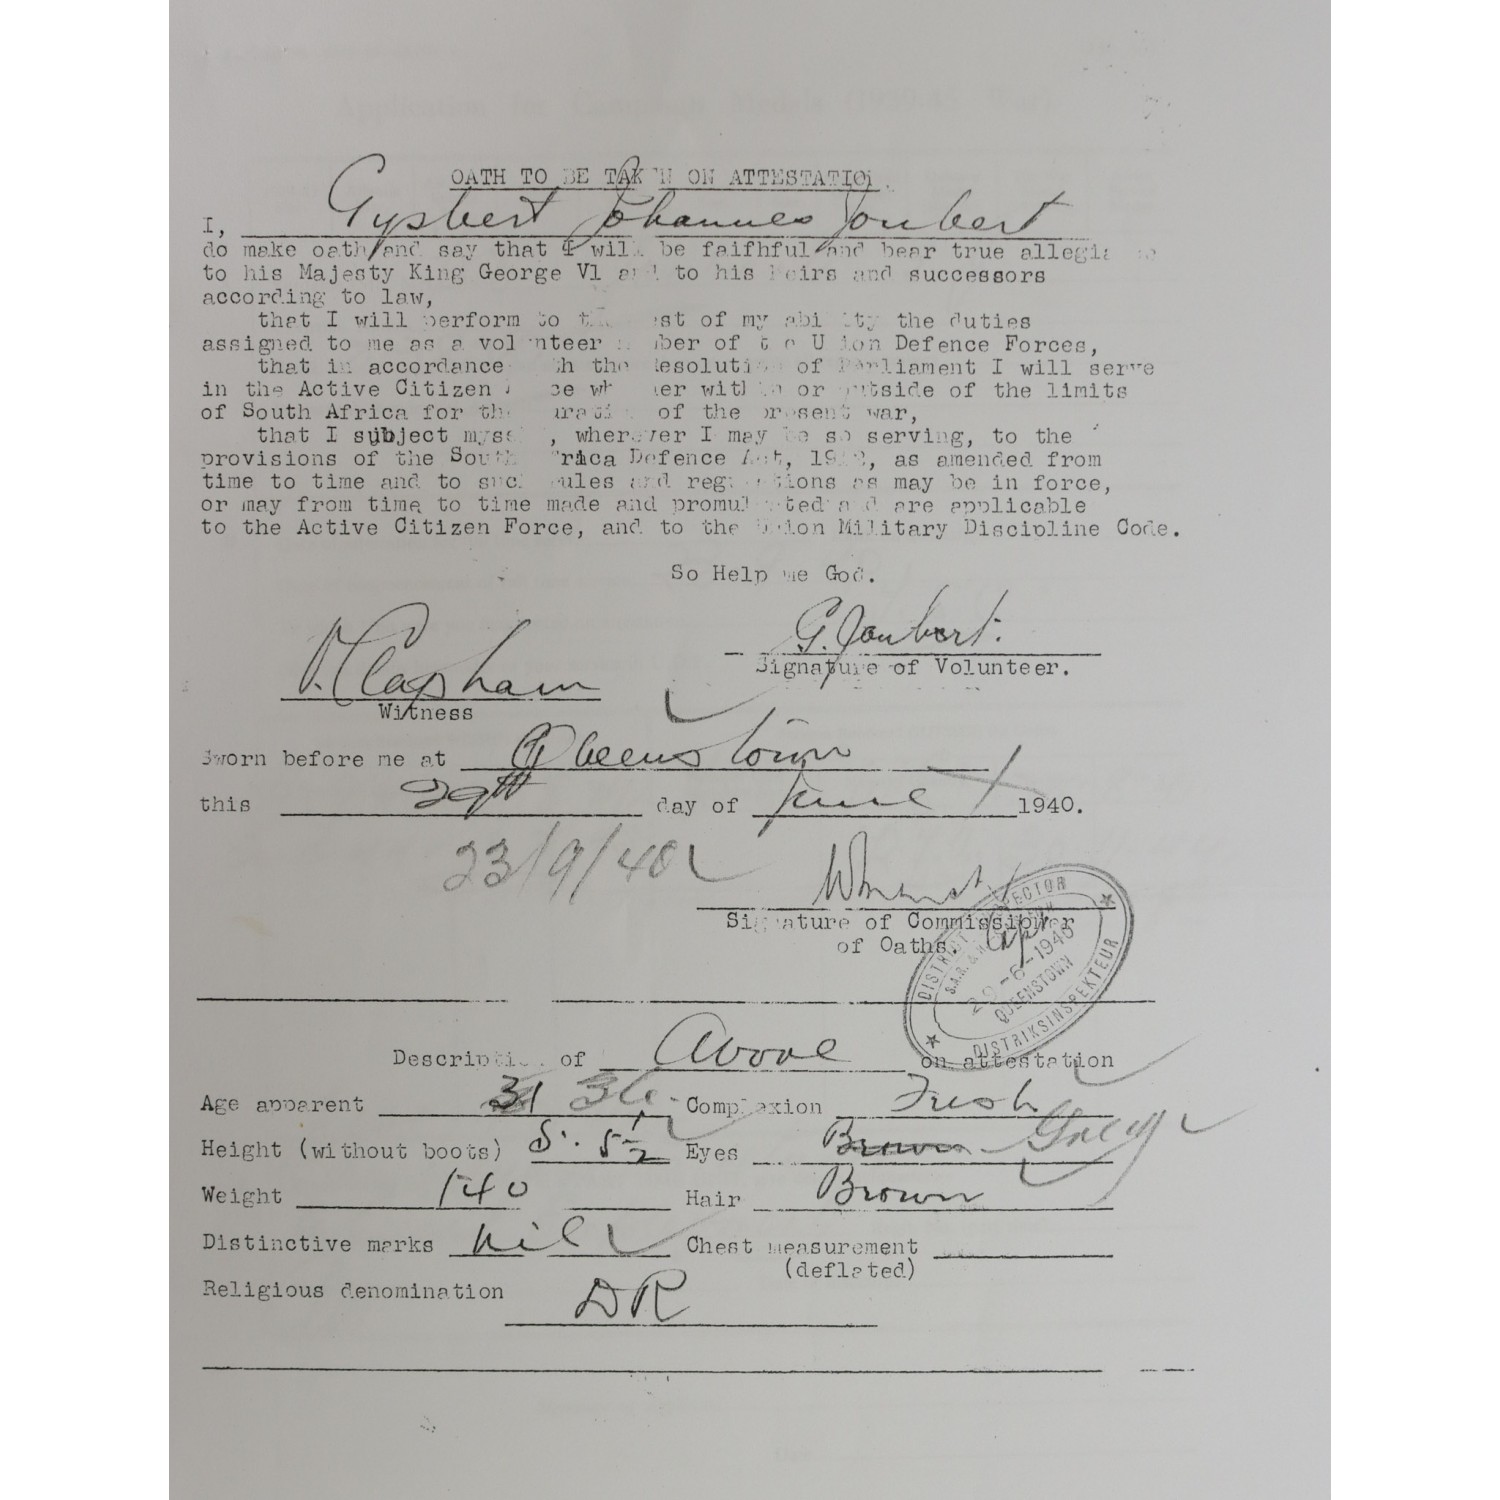 OATH TO BE TAKEN ON ATTESTATION.
I, Gysbert Johannes Joubert
do make oath and say that I will be faifhful and bear true allegia
to his Majesty King George Vl and to his heirs and successors
according to law,
that I will perform to the best of my ability the duties
assigned to me as a volunteer member of the Union Defence Forces,
that in accordance with the Resolution of Parliament I will serve
in the Active Citizen Force whether within or outside of the limits
of South Africa for the duration of the present war,
that I subject myself, wherever I may be so serving, to the
provisions of the South Africa Defence Act, 1912, as amended from
time to time and to such rules and regulations as may be in force,
or may from time to time made and promulgated and are applicable
to the Active Citizen Force, and to the Union Military Discipline Code.
So Help me God.
G. Joubert.
Signature of Volunteer.
Clapham
Witness
Sworn before me at Queenstown
this 29th day of June 1940.
23/9/40
Signature of Commissioner
of Oaths.
DISTRICT INSPECTOR
S.A.R. & H.
29-6-1940
QUEENSTOWN
DISTRIKSINSPEKTEUR
Description of Above on attestation
Age apparent 31 36 Complexion Fresh
Height (without boots) 5'. 5½ Eyes Brown Grey
Weight 140 Hair Brown
Distinctive marks nil Chest measurement
(deflated)
Religious denomination DR